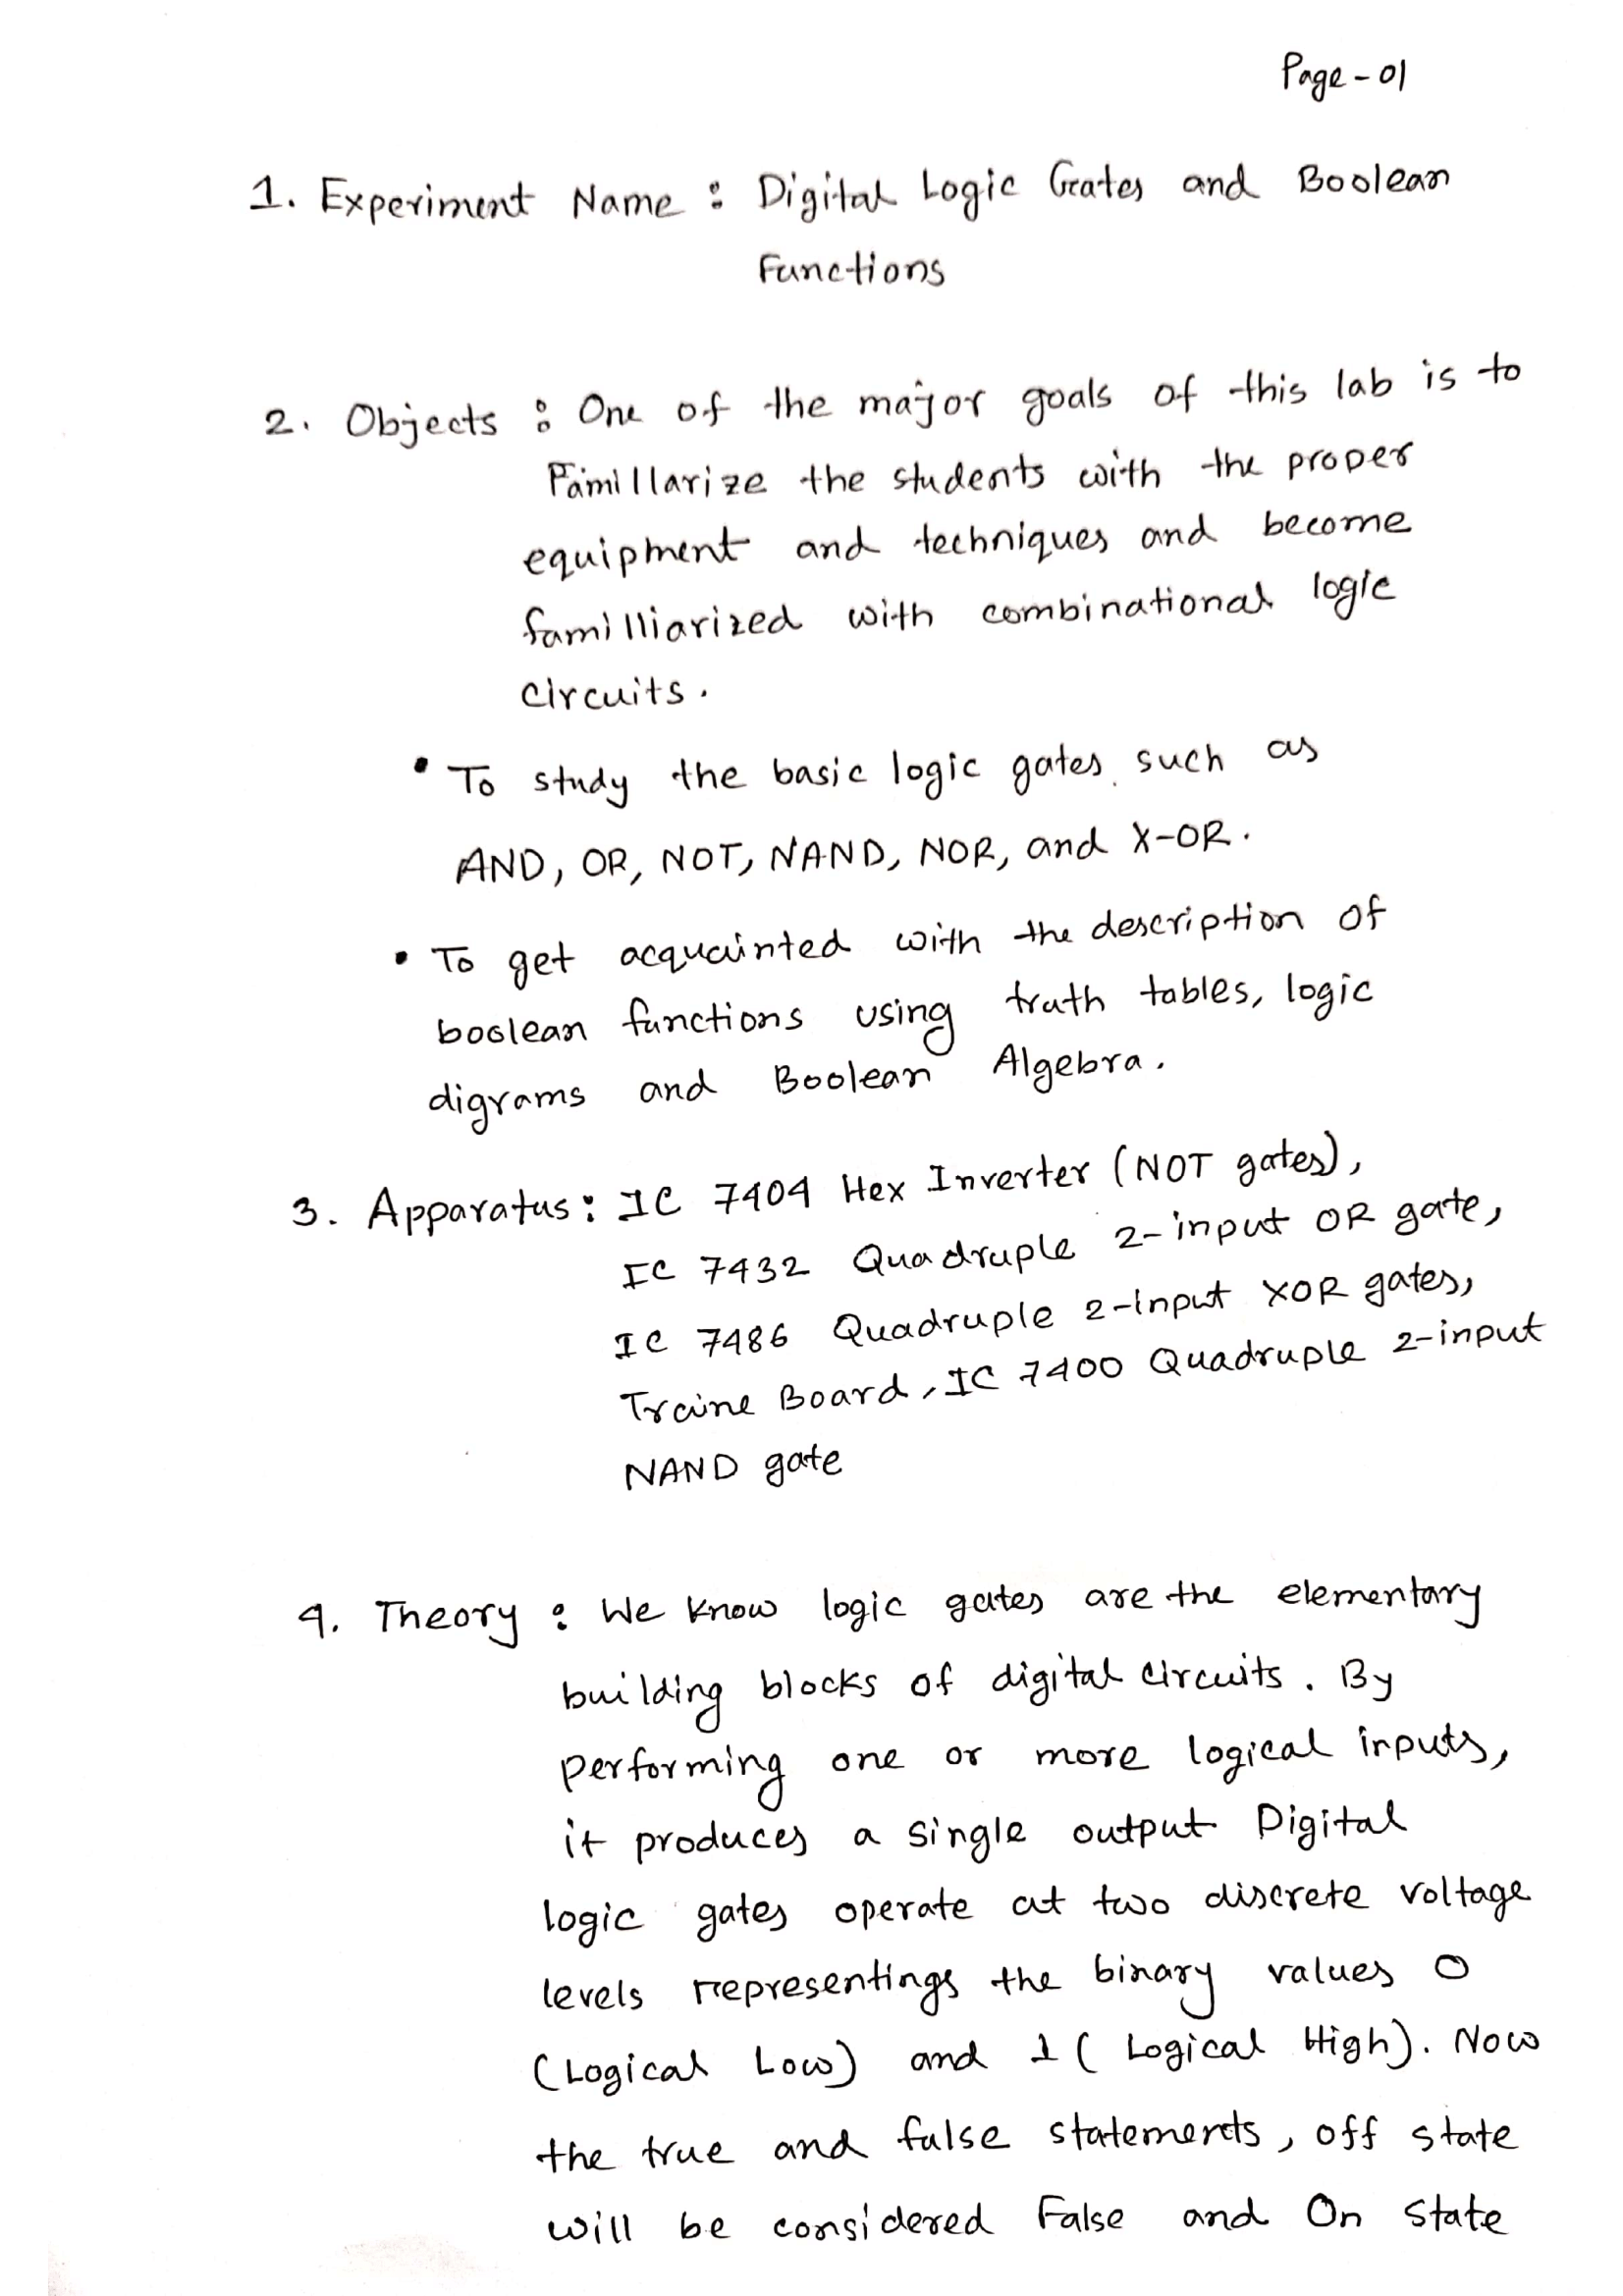 Page-01
1. Experiment Name : Digital Logic Gates and Boolean
Functions
2. Objects : One of the major goals of this lab is to
Famillarize the students with the proper
equipment and techniques and become
familliarized with combinational logic
circuits.
• To study the basic logic gates such as
AND, OR, NOT, NAND, NOR, and X-OR.
• To get acquainted with the description of
boolean functions using truth tables, logic
digrams and Boolean Algebra.
3. Apparatus: IC 7404 Hex Inverter (NOT gates),
IC 7432 Quadruple 2-input OR gate,
IC 7486 Quadruple 2-input XOR gates,
Traine Board, IC 7400 Quadruple 2-input
NAND gate
4. Theory : We know logic gates are the elementary
building blocks of digital circuits. By
performing one or more logical inputs,
it produces a single output Digital
logic gates operate at two discrete voltage
levels representings the binary values 0
(Logical Low) and 1 (Logical High). Now
the true and false statements, off state
will be considered False and On state